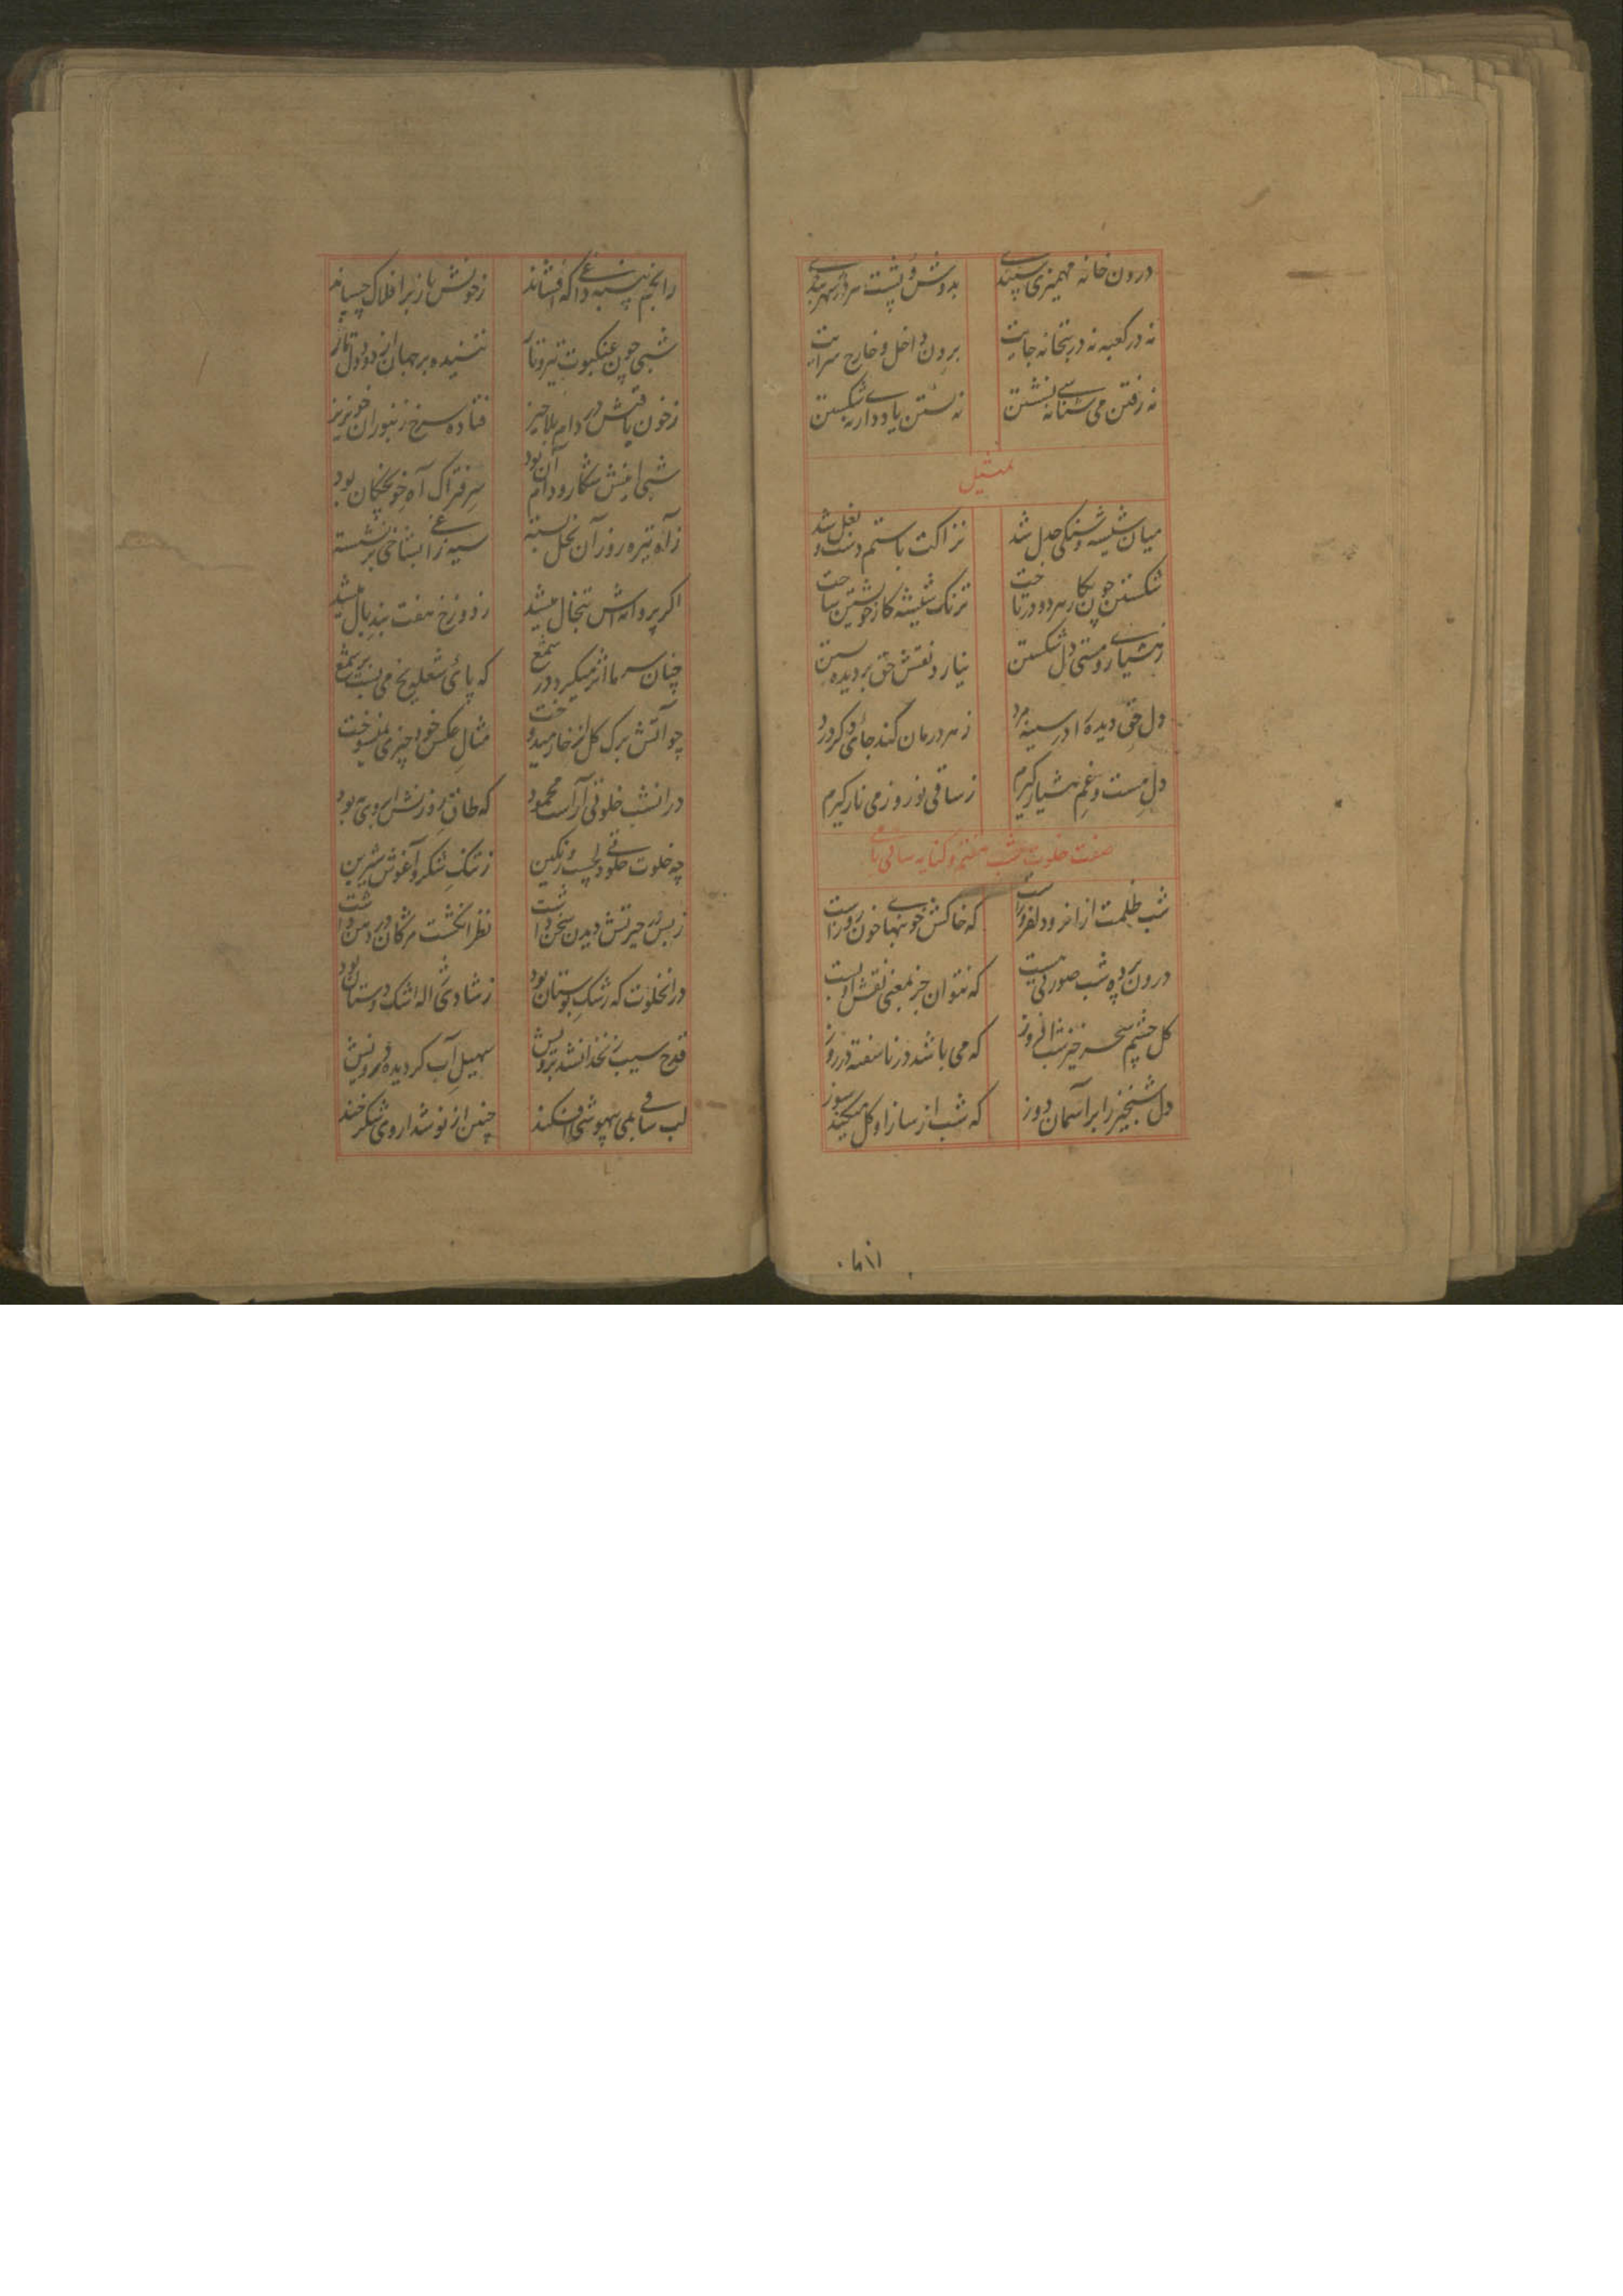 درون خانه مهمیزی سپندی بدوش و پشت سر در شهربندی
نه در کعبه نه در بتخانه جایت برون داخل و خارج سرایت
نه رفتن می شناسی نه نشستن نه بستن یاد داری نه شکستن
تمثیل
میان شیشه و سنگی جدل شد نزاکت با ستم دست و بغل شد
شکستن چون بکار هر دو در تاخت ترنک شیشه کار خویشتن ساخت
زهشیاری و مستی دل شکستن نیارد نقش حق بر دیده بستن
دل حق دیده در سینه مرد زهر درمان کند جای دکر درد
دل مست و غم هشیار کیرم زساقی نوروز می نار کیرم
صفت خلوت شب هفتم و کنایه ساقی نامه
شب ظلمت از انرو دلفروزست که خاکش خونبهای خون روزست
درون پرده شب صورتی هست که نتوان جز بمعنی نقش او بست
کل چشم سحر خیز شب افروز که می باشد در ناسفته در روز
دل شبخیز را بر آسمان دوز که شب از ساز او کل میکند سوز
زانجم پنبه داغی که افشاند زخونش باز بر افلاک چسپاند
شبی چون عنکبوت تیره و تار تنیده بر جهان از دود دل تار
زخون پاشش در دام بلاخیز فتاده سرخ زنبوران خونریز
شبی افتش شکار و دام آن بود سر فتراک آه خونچکان بود
زآه تیره روز آن نخل بسته سیه زاغی بشاخی بر نشسته
اکر پروانه اش تبخال میشد زدوزخ هفت بند بال میشد
چنان سرما اثر میکرد در شمع که پای شعله یخ می بست بر شمع
چو آتش برک کل از خار میدوخت مثال عکس خود چیزی نمیسوخت
درانشب خلوتی آراست محمود که طاق روزنش ابروی به بود
چه خلوت خلوتی دلچسپ و رنکین زتنک شکر و آغوش شیرین
زبس در حیرتش دیدن سخن داشت نظر انکشت مژکان در دهن داشت
درانخلوت که رشک بوستان بود زشادی ژاله اشک دوستان بود
قدح سیب زنخدانشد برویش سهیل آب کردیده درونش
لب ساقی بمی بیهوشی افکند چنین از نوشداروی شکرخند